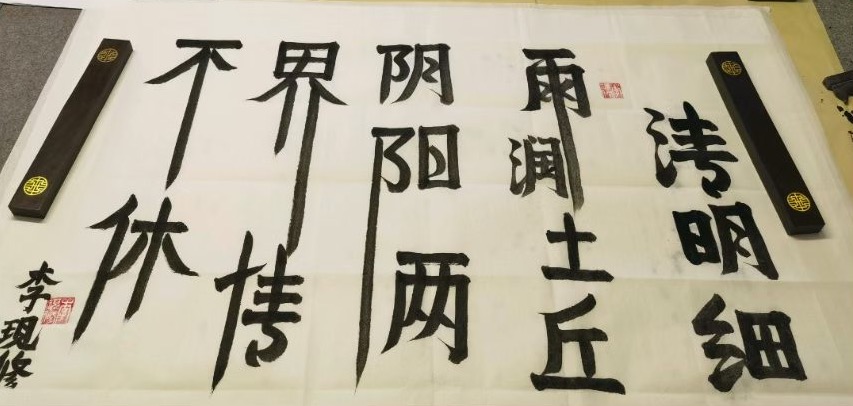 清明细
雨润土丘
阴阳两
界情
不休
李现修